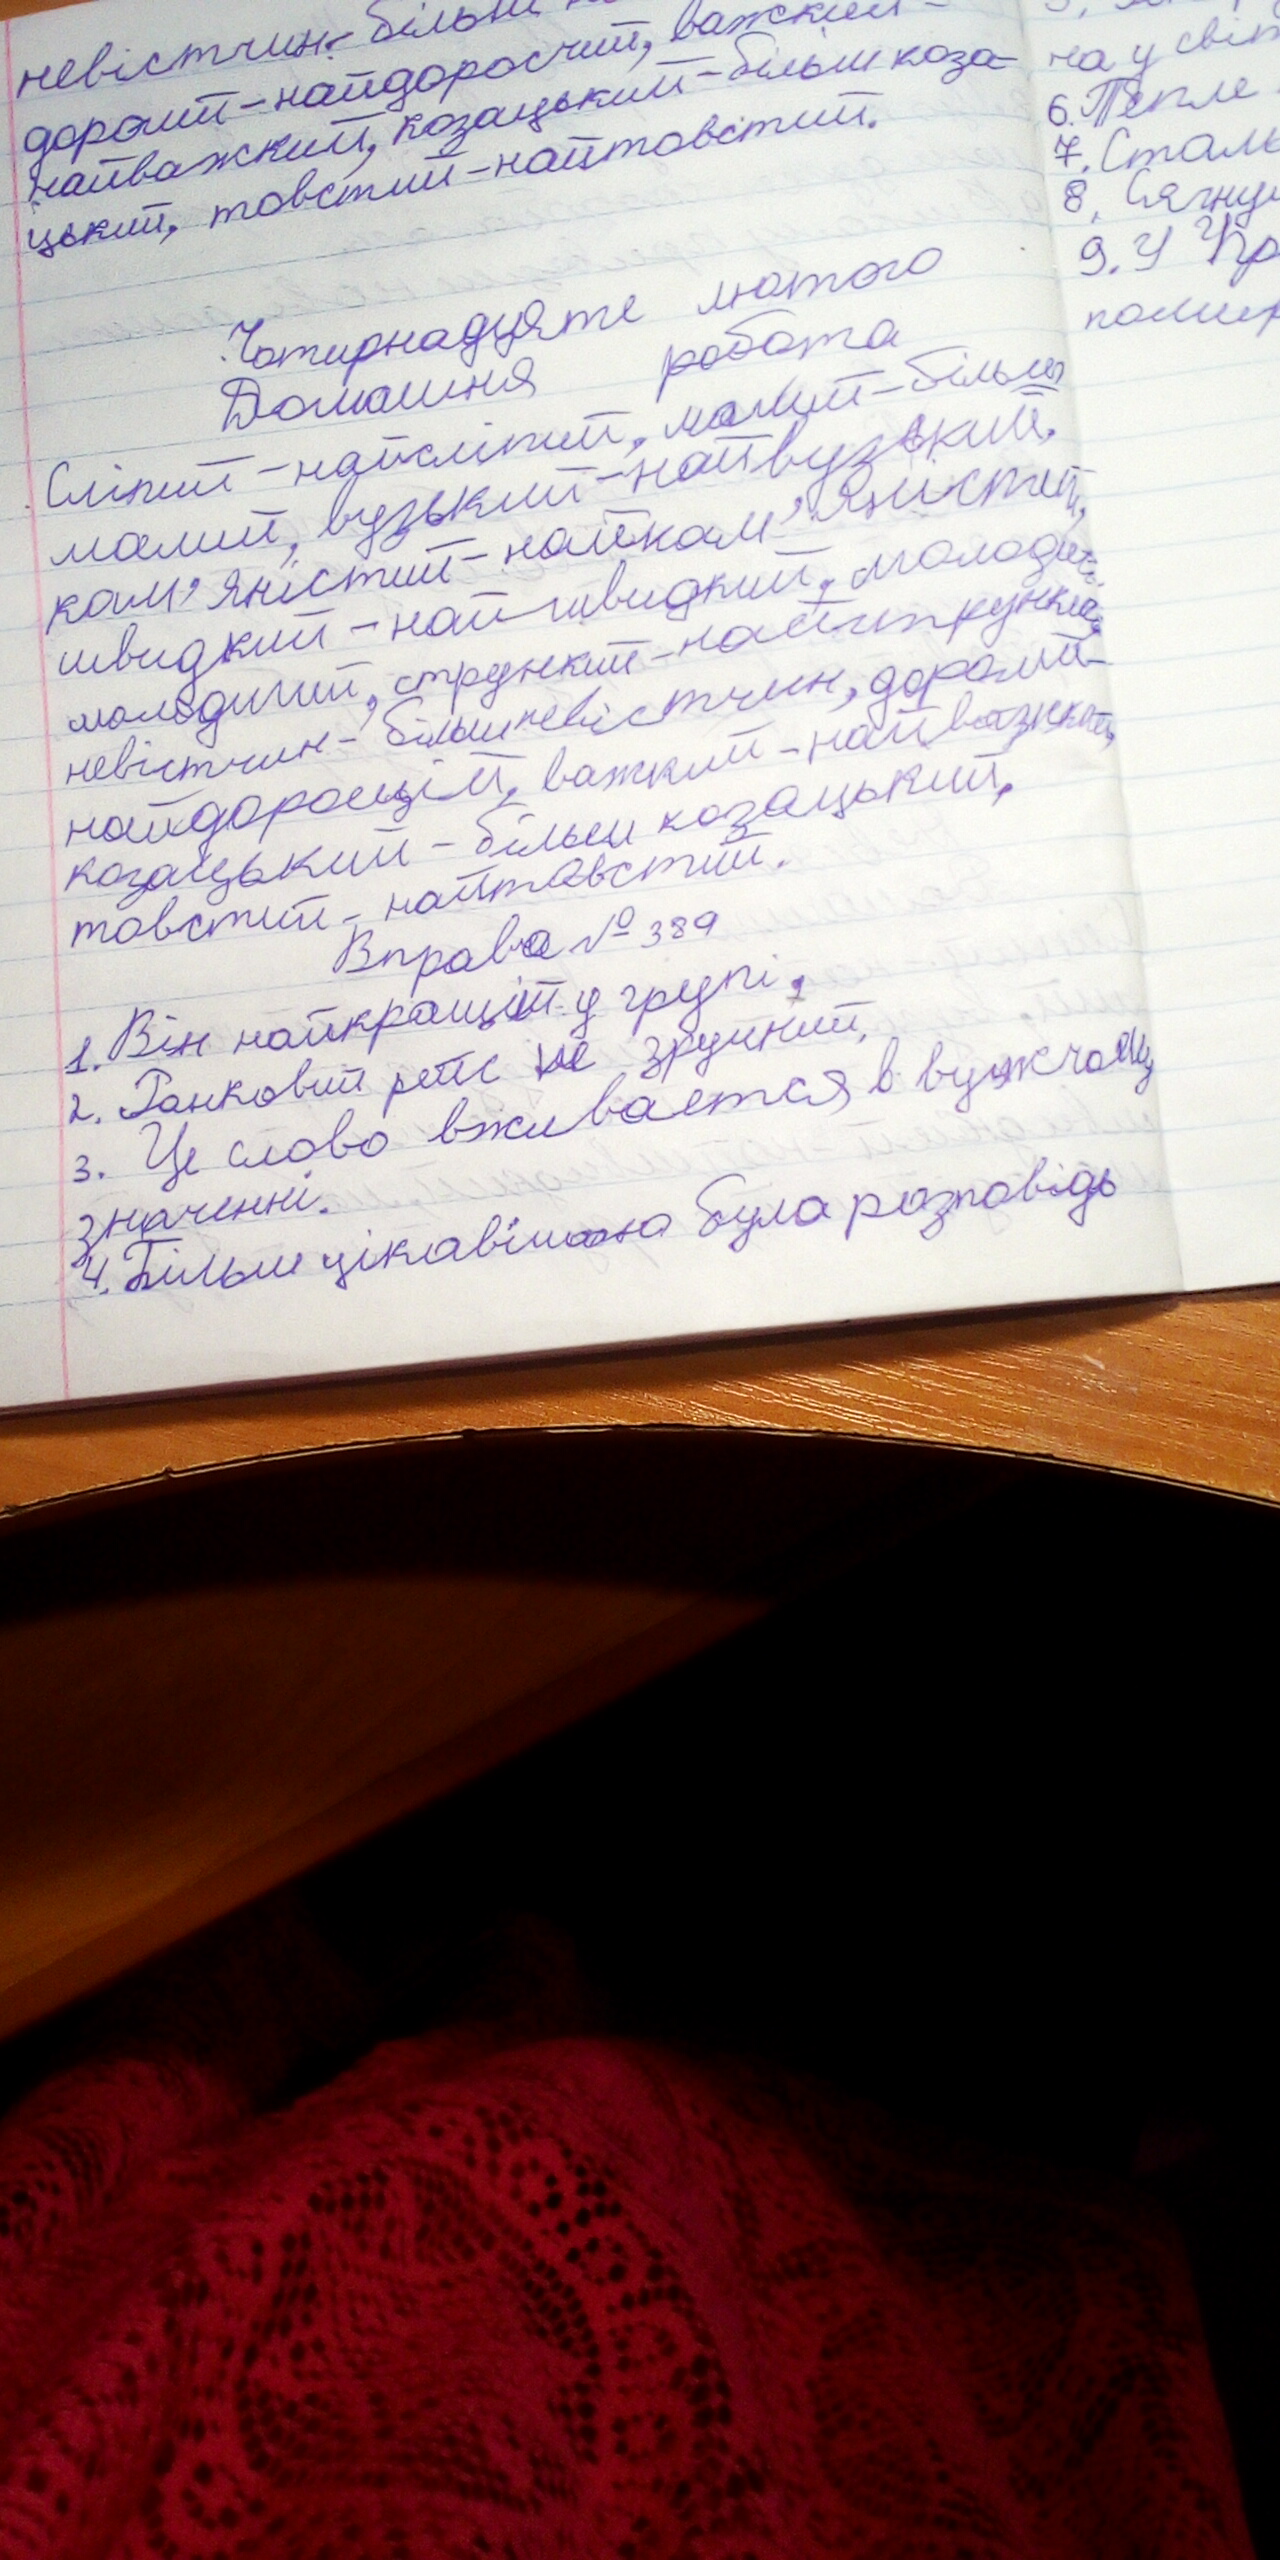 невістчин-більш
дорогий-найдоросчий, важкий-
найважкий, козацький-більш коза-
цький, товстий-найтовстий.
Чотирнадцяте лютого
Домашня робота
Сліпий-найсліпий, малий-більш
малий, вузький-найвузький.
кам'яністий-найкам'яністий,
швидкий-найшвидкий, молоди-
молодший, стрункий-найстрункі
невістчин-більш невістчин, дорогий-
найдорощій, важкий-найважкий,
козацький-більш козацький,
товстий-найтовстий.
Вправа № 389
1. Він найкращій у групі.
2. Ранковий рейс не зручний.
3. Це слово вживается в вужчому
значенні.
4. Більш цікавішою була розповідь
на у світ
6. Тепле
7. Сталь
8, Сягну
9. У